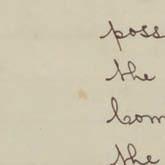 poss
the
com
the